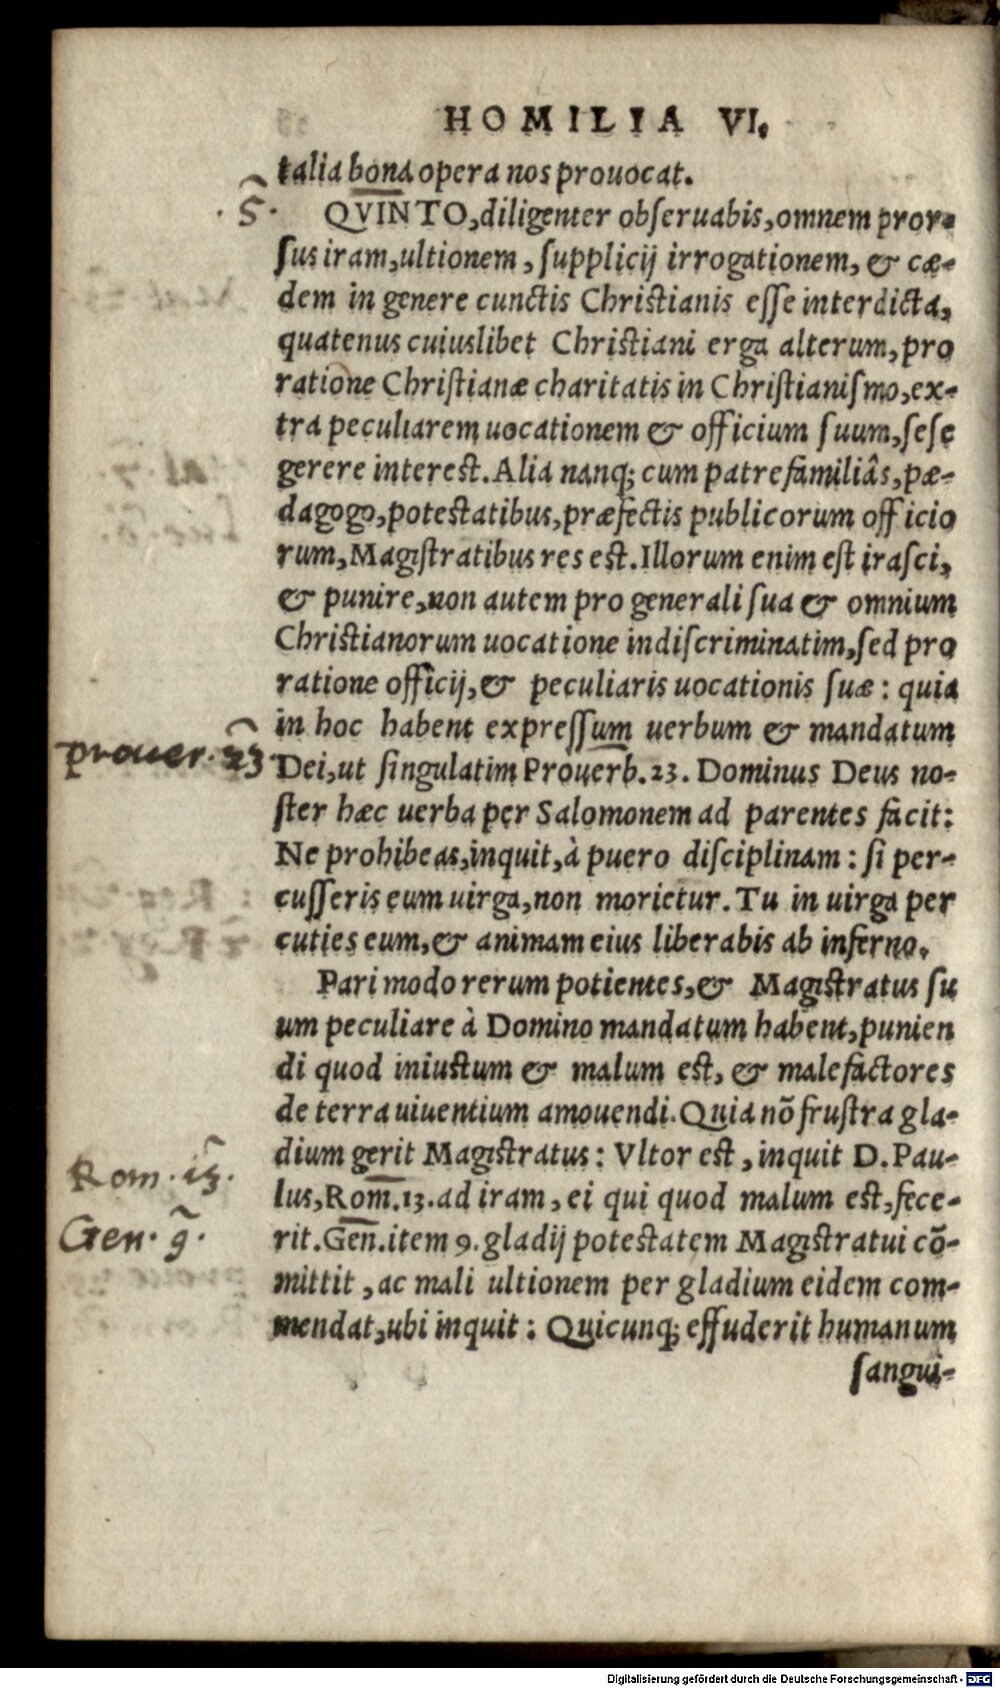 HOMILIA VI.
talia bona opera nos prouocat.
.5.
QVINTO, diligenter obſeruabis, omnem pror-
ſus iram, ultionem, ſupplicij irrogationem, & cæ-
dem in genere cunctis Chriſtianis eſſe interdicta,
quatenus cuiuslibet Chriſtiani erga alterum, pro
ratione Chriſtianæ charitatis in Chriſtianiſmo, ex-
tra peculiarem uocationem & officium ſuum, ſeſe
gerere intereſt. Alia nanq; cum patrefamiliâs, pæ-
dagogo, poteſtatibus, præfectis publicorum officio
rum, Magiſtratibus res eſt. Illorum enim eſt iraſci,
& punire, non autem pro generali ſua & omnium
Chriſtianorum uocatione indiſcriminatim, ſed pro
ratione officij, & peculiaris uocationis ſuæ: quia
in hoc habent expreſſum uerbum & mandatum
prouer. 23
Dei, ut ſingulatim Prouerb. 23. Dominus Deus no-
ſter hæc uerba per Salomonem ad parentes facit:
Ne prohibeas, inquit, à puero diſciplinam: ſi per-
cuſſeris eum uirga, non morietur. Tu in uirga per
cuties eum, & animam eius liberabis ab inferno.
Pari modo rerum potientes, & Magiſtratus ſu
um peculiare à Domino mandatum habent, punien
di quod iniuſtum & malum eſt, & malefactores
de terra uiuentium amouendi. Quia nõ fruſtra gla-
dium gerit Magiſtratus: Vltor eſt, inquit D. Pau-
Rom. 13.
lus, Rom. 13. ad iram, ei qui quod malum eſt, fece-
Gen. 9.
rit. Gen. item 9. gladij poteſtatem Magiſtratui cõ-
mittit, ac mali ultionem per gladium eidem com-
mendat, ubi inquit: Quicunq; effuderit humanum
ſangui-
Digitalisierung gefördert durch die Deutsche Forschungsgemeinschaft - DFG